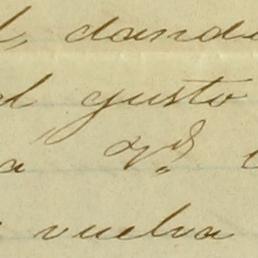 dand
gusto
a Vd.
vuelva